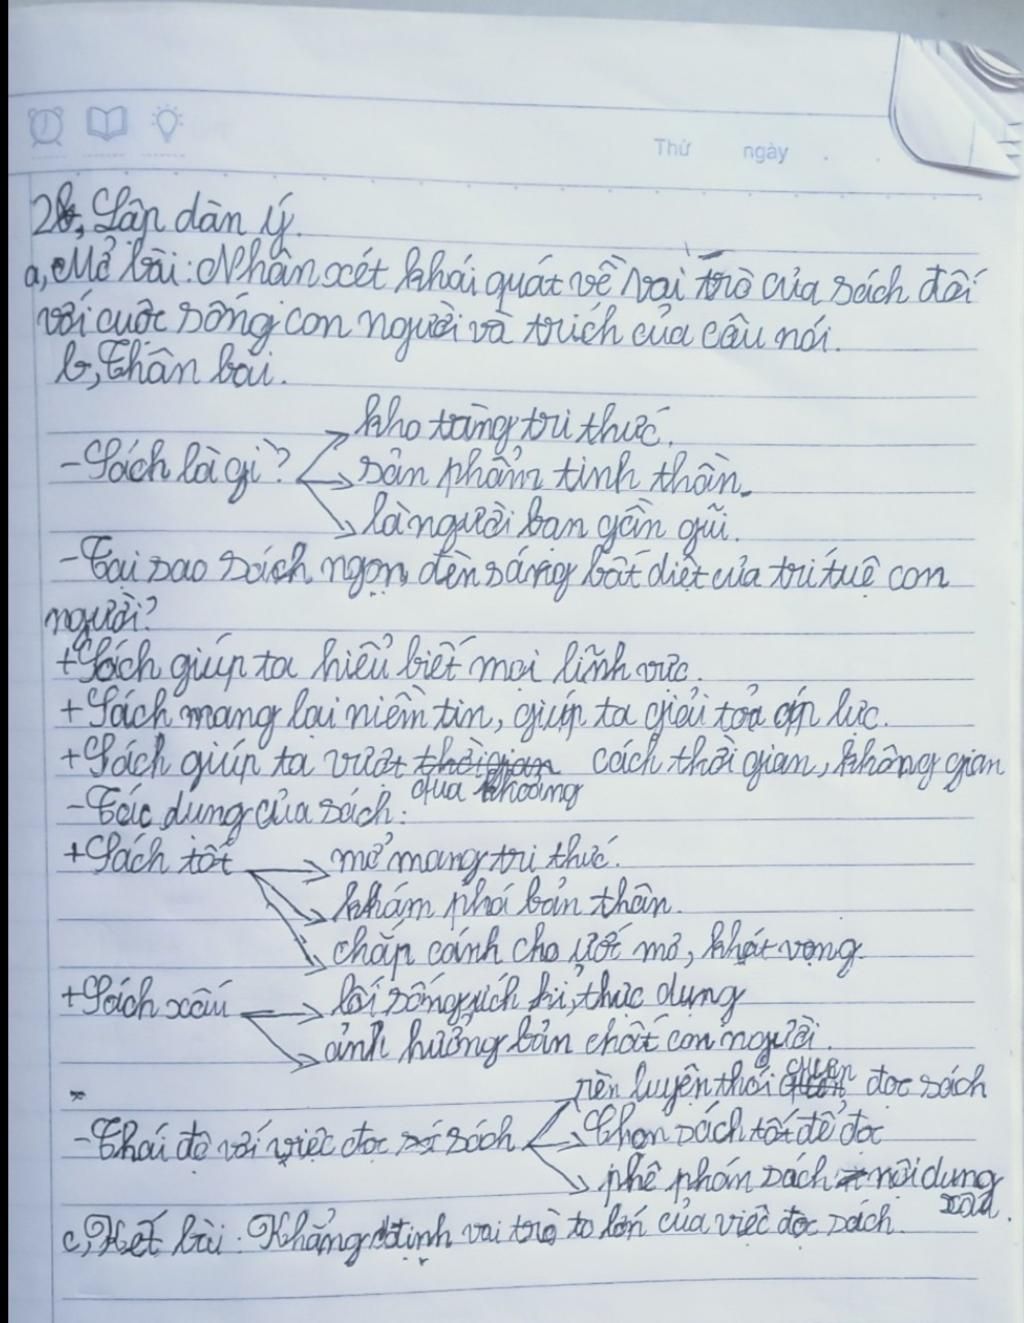 Thứ ngày
2, Lập dàn ý.
a, Mở bài: Nhận xét khái quát về vai trò của sách đối
với cuộc sống con người và trích của câu nói.
b, Thân bài.
kho tàng tri thức.
- Sách là gì? sản phẩm tinh thần.
là người bạn gần gũi.
- Tại sao sách ngọn đèn sáng bất diệt của trí tuệ con
người?
+ Sách giúp ta hiểu biết mọi lĩnh vực.
+ Sách mang lại niềm tin, giúp ta giải tỏa áp lực.
+ Sách giúp ta vượt thời gian cách thời gian, không gian
qua khoảng
- Tác dụng của sách:
+ Sách tốt mở mang tri thức.
khám phá bản thân.
chắp cánh cho ước mơ, khát vọng.
+ Sách xấu lối sống ích kỉ, thực dụng
ảnh hưởng bản chất con người.
rèn luyện thói quen đọc sách
- Thái độ với việc đọc sách Chọn sách tốt để đọc
phê phán sách nội dung
xấu.
c, Kết bài: Khẳng định vai trò to lớn của việc đọc sách.